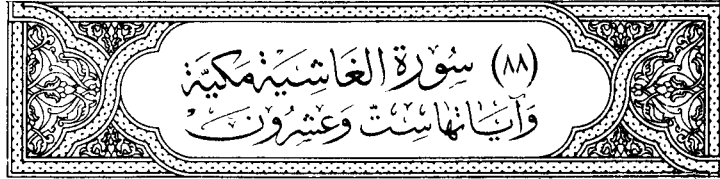 (٨٨) سُورَة الغَاشِيَة مَكيَّة
وَآيَاتهَا سِتّ وَعشرُون